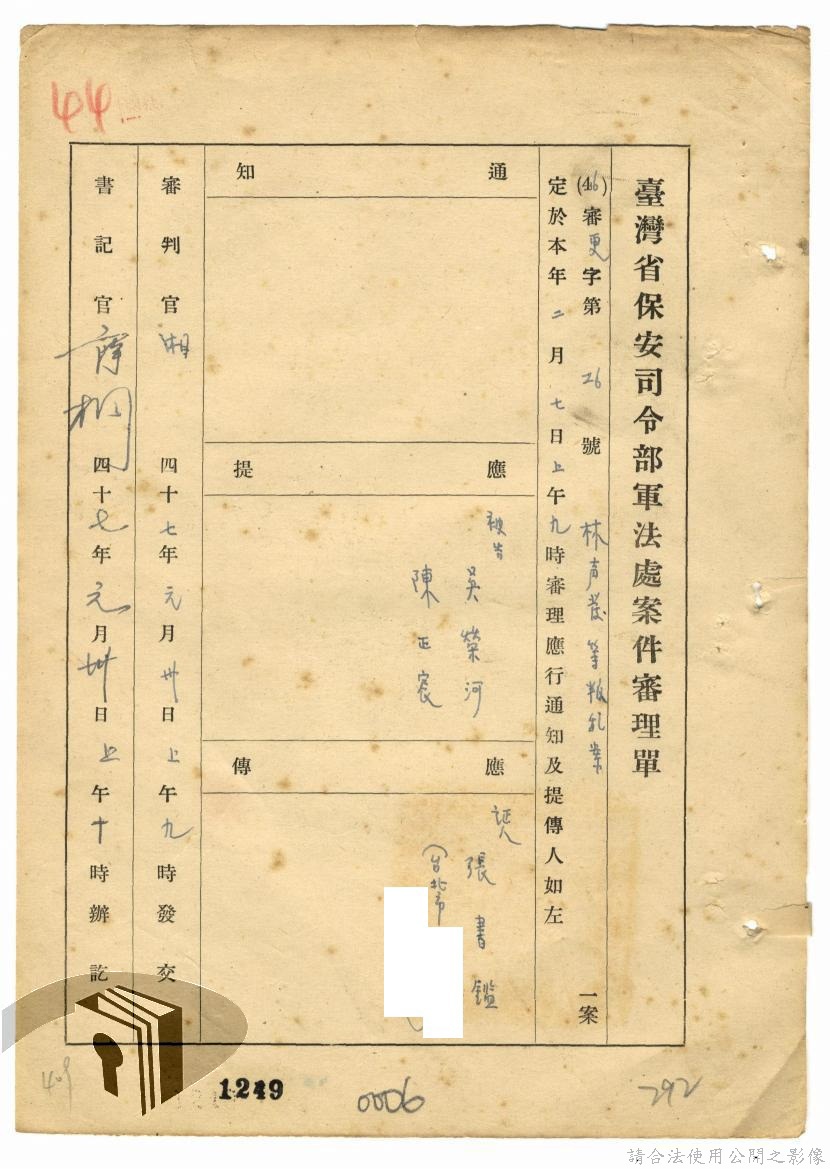 44
臺灣省保安司令部軍法處案件審理單
(46)審更字第26號 林声發等叛乱案 一案
定於本年二月七日上午九時審理應行通知及提傳人如左
通知
應提
被告 吳榮河
陳正宸
應傳
証人 張書鑑
(台北市
審判官 湘 四十七年元月卅日上午九時發交
書記官 四十七年元月卅日上午十時辦訖
1249
0006
292
409
請合法使用公開之影像